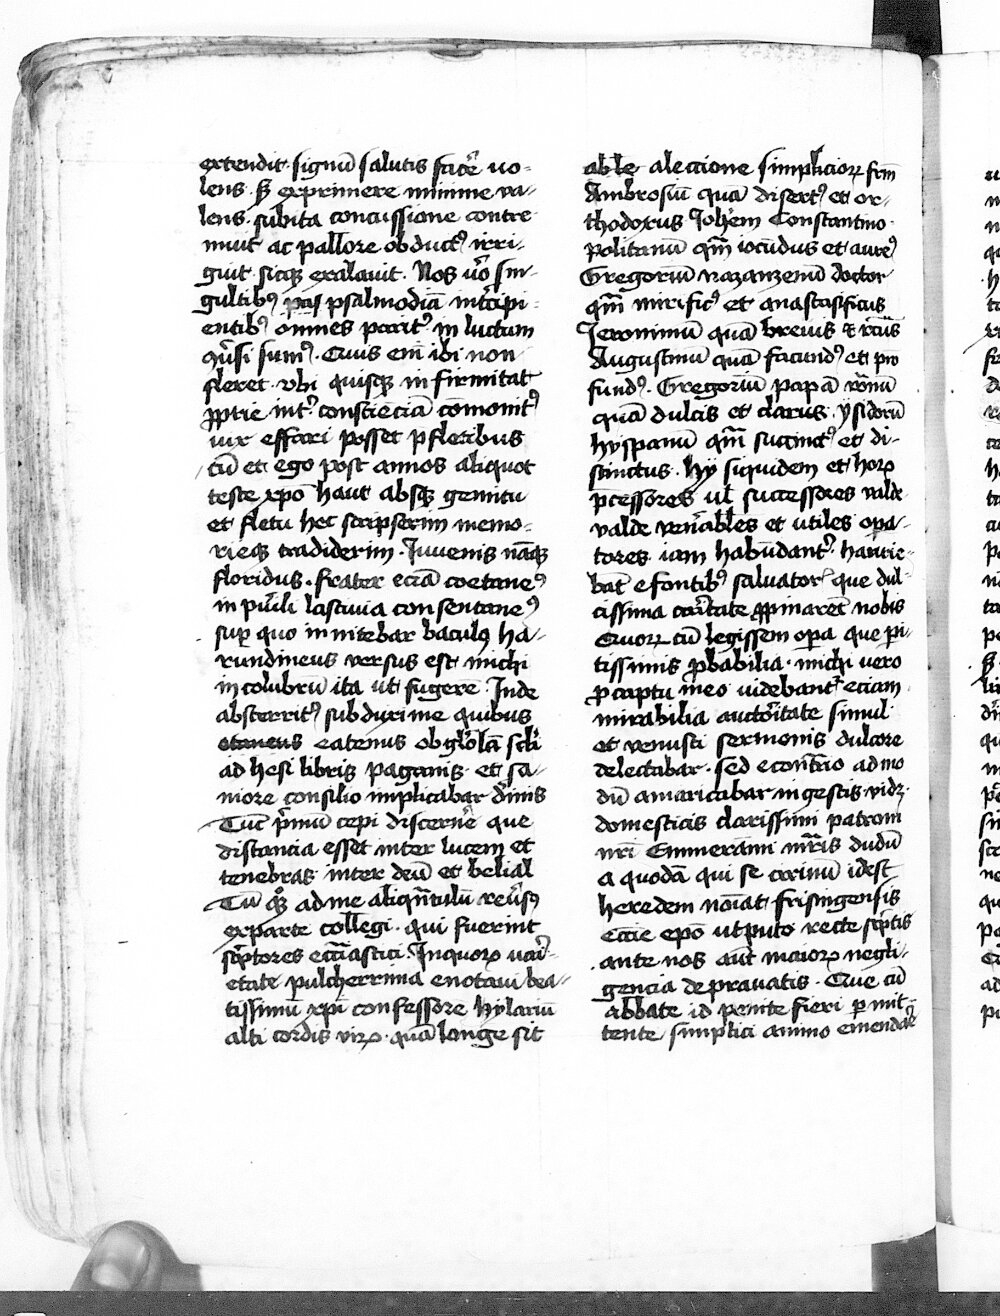 extendit. signū salutis facē͛ uo-
lens. Sȝ exprimere minime va-
lens. subita concussione contre
muit ac pallore obductꝰ irri-
guit sicqꝫ exalauit. Nos vͦo sin-
gultibꝰ psalmodiā int͛cipi-
entibꝰ omnes parit͛ in luctum
sumꝰ. Cuius em̄ ibi non
fleret. vbi quisqꝫ infirmitat
ꝓprie int͛ consciēciā cōmonitꝰ
uix effari posset p̄ fletibus
cū et ego post annos aliquot
teste xp̄o haut absqꝫ gemitu
et fletu hec scripserim memo-
rieqꝫ tradiderim. Iuvenis nāqꝫ
floridus. frater eciā coetaneꝰ
in pu͛ili lasciuia consentaneꝰ
suꝑ quo innitebar baculꝰ ha-
rundineus versus est michi
in colubrū ita ut fugerē. Inde
absterritꝰ subduxi me quibus
eatenus ob gl̄olā scl̄i
adhesi libris paganis. et sa-
niore consilio implicabar diuīs
Tūc p͛mū cepi discernē͛ que
distancia esset inter lucem et
tenebras inter deū et belial
Tū ad me aliqn̄tulū reu͛sꝰ
ex parte collegi. qui fuerint
sc͛ptores eccl̄iastici. In quoꝝ uari-
etate pulcherrima enotaui bea-
tissimū xp̄i confessorē hylariū
alti cordis viꝝ. quā longe sit
able alectione simplicioꝝ
Ambrosiū quā disertꝰ et or-
thodoxus Ioh̄em Constantino
politanū qm̄ iocūdus et aureꝰ
Gregoriū nazanzenū doctor
qm̄ mirificꝰ et anastasificus
Ieronimū quā breuis &
Augustinū quā facundꝰ et pro
fundꝰ. Gregoriū papā romā͛nū
quā dulcis et clarus. ysidorū
hyspanū qm̄ succinctꝰ et di-
stinctus. Hy siquidem et hoꝝ
p̄cessores ul̄ successores valde
valde ven͛abiles et utiles opa-
tores iam habūdant͛. haurie-
bāt e fontibꝰ saluator͛ que dul-
cissima ca͛ritate ꝓpinarēt nobis
Quoꝝ cū legissem opa que pi-
tissimis ꝓbabilia. michi uero
ꝓ captu meo uidebant͛ eciam
mirabilia aucto͛itate simul
et venusti sermonis dulcore
delectabar. Sed econtrͣio ad mo
dū amaricabar in gestis vidꝫ
domesticis clarissimi patroni
nr̄i Emmerāmi mr̄is dudū
a quodā qui se cirinū idest
heredem noīat. frisingensis
eccīe epō ut puto recte sc͛ptis
ante nos aūt maioꝝ negli-
gencia deprauatis. Que cū
abbate id penite fieri ꝑmit-
tente simplici animo emendā͛e